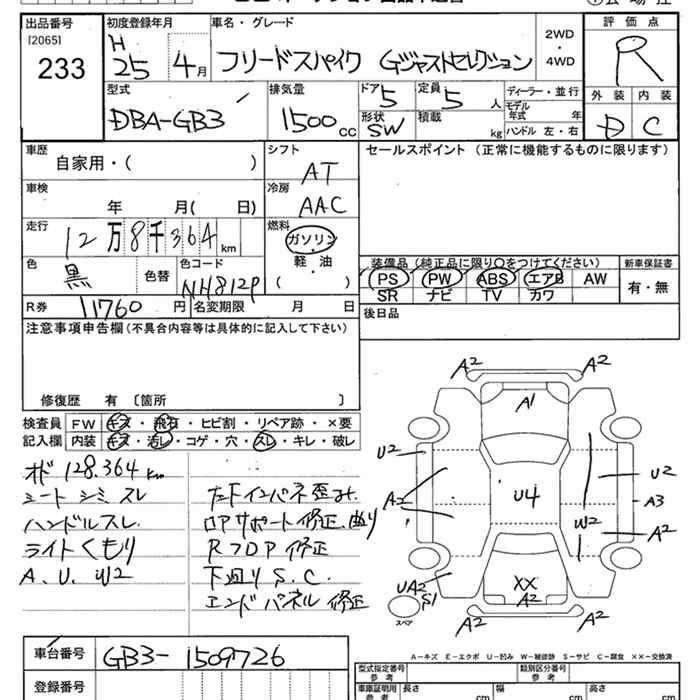 出品番号 初度登録年月 車名・グレード 評価点
[2065] 233 H 25 4月 フリードスパイク Gジャストセレクション 2WD・4WD R
型式 排気量 ドア 定員 ディーラー・並行 外装 内装
DBA-GB3 1500cc 5 5人 モデル年式 年 D C
形状 SW 積載 kg ハンドル 左・右
車歴 シフト セールスポイント (正常に機能するものに限ります)
自家用・( ) AT
車検 冷房
年 月( 日) AAC
走行 燃料
12万8千364km ガソリン
軽・油
( )
色 黒 色替 色コード NH812P
装備品 (純正品に限り○をつけてください) 新車保証書
PS PW ABS エアB AW 有・無
SR ナビ TV カワ
R券 11760円 名変期限 月 日
後日品
注意事項申告欄 (不具合内容等は具体的に記入して下さい)
修復歴 有 〔箇所 〕
検査員 FW キズ・飛石・ヒビ割・リペア跡・×要
記入欄 内装 キズ・汚レ・コゲ・穴・スレ・キレ・破レ
オド 128.364km
シート シミ スレ
ハンドルスレ
ライトくもり
A、U、W2
インパネ歪み
コアサポート修正
Rフロア修正
下廻りS.C.
エンドパネル修正
A2 A2
A1
U2
A2
U4
U2
A3
W2
A2
UA2
S1
スペア
XX
A2
A2 A2
A-キズ E-エクボ U-凹み W-補修跡 S-サビ C-腐食 ××-交換済
車台番号 GB3-1509726
登録番号
型式指定番号 参考 類別区分番号 参考
車庫証明用 参考 長さ cm 幅 cm 高さ cm